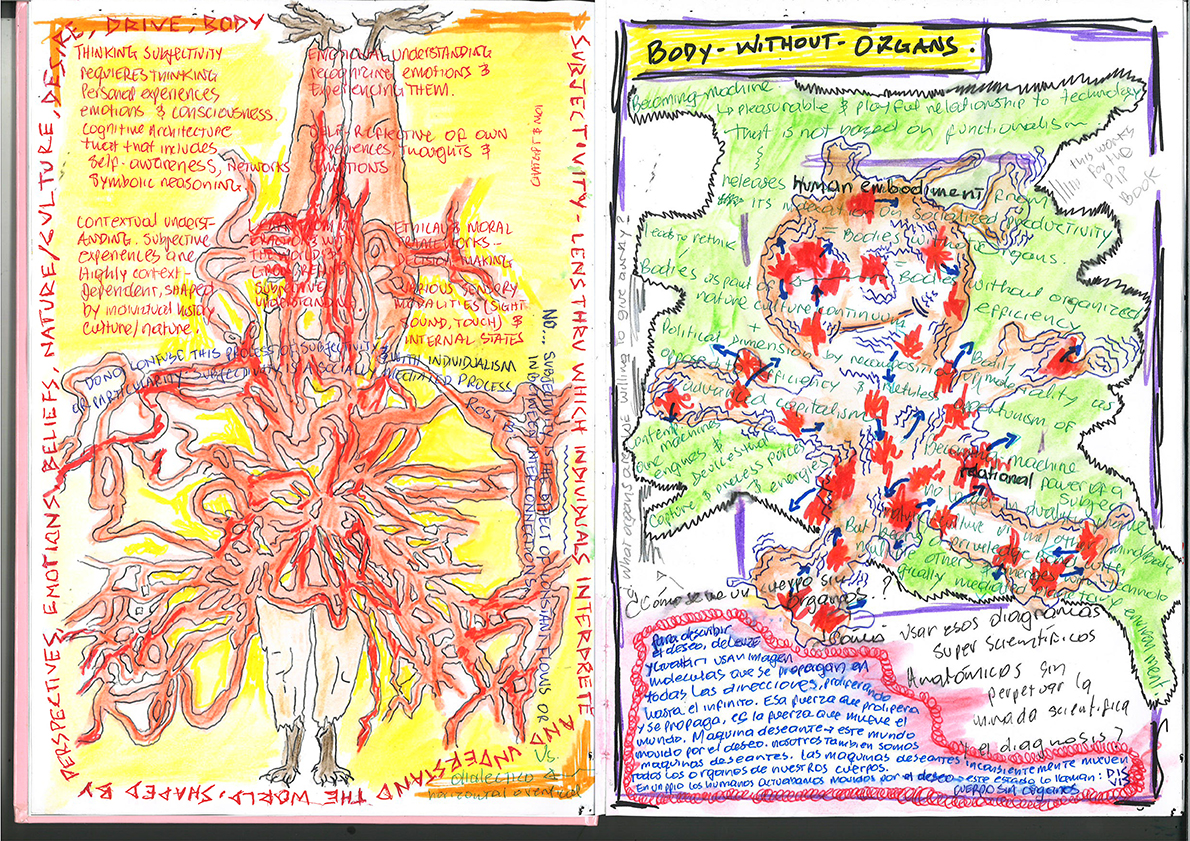 PERSPECTIVES, EMOTIONS, BELIEFS, NATURE/CULTURE, DESIRE, DRIVE, BODY
SUBJECTIVITY - LENS THRU WHICH INDIVIDUALS INTERPRETE AND UNDERSTAND THE WORLD, SHAPED BY
THINKING SUBJECTIVITY
REQUIERES THINKING
Personal experiences
emotions & consciousness.
Cognitive Architecture
that that includes
Self-awareness, networks
Symbolic reasoning.
EMOTIONAL UNDERSTANDING
recognizing emotions &
Experiencing THEM.
SELF-REFLECTIVE OF OWN
EXPERIENCES THOUGHTS &
EMOTIONS
CHATGPT & NO!
CONTEXTUAL UNDERST-
ANDING. Subjective
experiences are
Highly context-
Dependent, shaped
by individual history
culture/nature.
THE WORLD IS
SUBJECTIVE
UNDERSTANDING
ETHICAL & MORAL
FRAMEWORKS -
DECISION-MAKING
VARIOUS SENSORY
MODALITIES (SIGHT
SOUND, TOUCH) &
INTERNAL STATES
DO NOT CONFUSE THIS PROCESS OF SUBJECTIVITY WITH INDIVIDUALISM
OR PARTICULARITY. SUBJECTIVITY IS A SOCIALLY MEDIATED PROCESS
NO... SUBJECTIVITY IS THE EFFECT OF
INTERCONNECTIONS
VS.
dialectics
horizontal vertical
BODY-WITHOUT-ORGANS.
Becoming machine
↳ measurable & playful relationship to technology
that is not based on functionalism
this works
for the
PIP
BOOK
releases human embodiment from
its indexation on socialized productivity
= Bodies without
organs.
leads to rethink
= Bodies without organized
efficiency
Bodies as part of
nature culture continuum
+
Political dimension by recomposing Bodily
materiality as
opposed to efficiency & opportunism of
advanced capitalism
Contemp.
machines
are
engines &
Devices that
Capture & process forces
& energies
Becoming machine
relational power of a
Subject
no longer in dualistic
But bears
multiple others & merges with techno-
logically mediated planetary environment
what organs are we willing to give away?
¿Cómo se ve un cuerpo sin
órganos?
¿Cómo usar esos diagramas
super scientíficos
Anatómicos sin
perpetuar la
mirada scientífica
y el diagnosis?
Para describir
el deseo, deleuze
y Guattari usan imagen
moleculas que se propagan en
todas las direcciones, proliferando
hasta el infinito. Esa fuerza que prolifera
y se propaga, es la fuerza que mueve el
mundo. Maquina deseante → este mundo
movido por el deseo. nosotros tambien somos
maquinas deseantes. Las maquinas deseantes incansientemente mueven
todos los organos de nuestros cuerpos.
En un ppio los humanos actuabamos movidos por el deseo → este estado lo llaman:
cuerpo sin organos